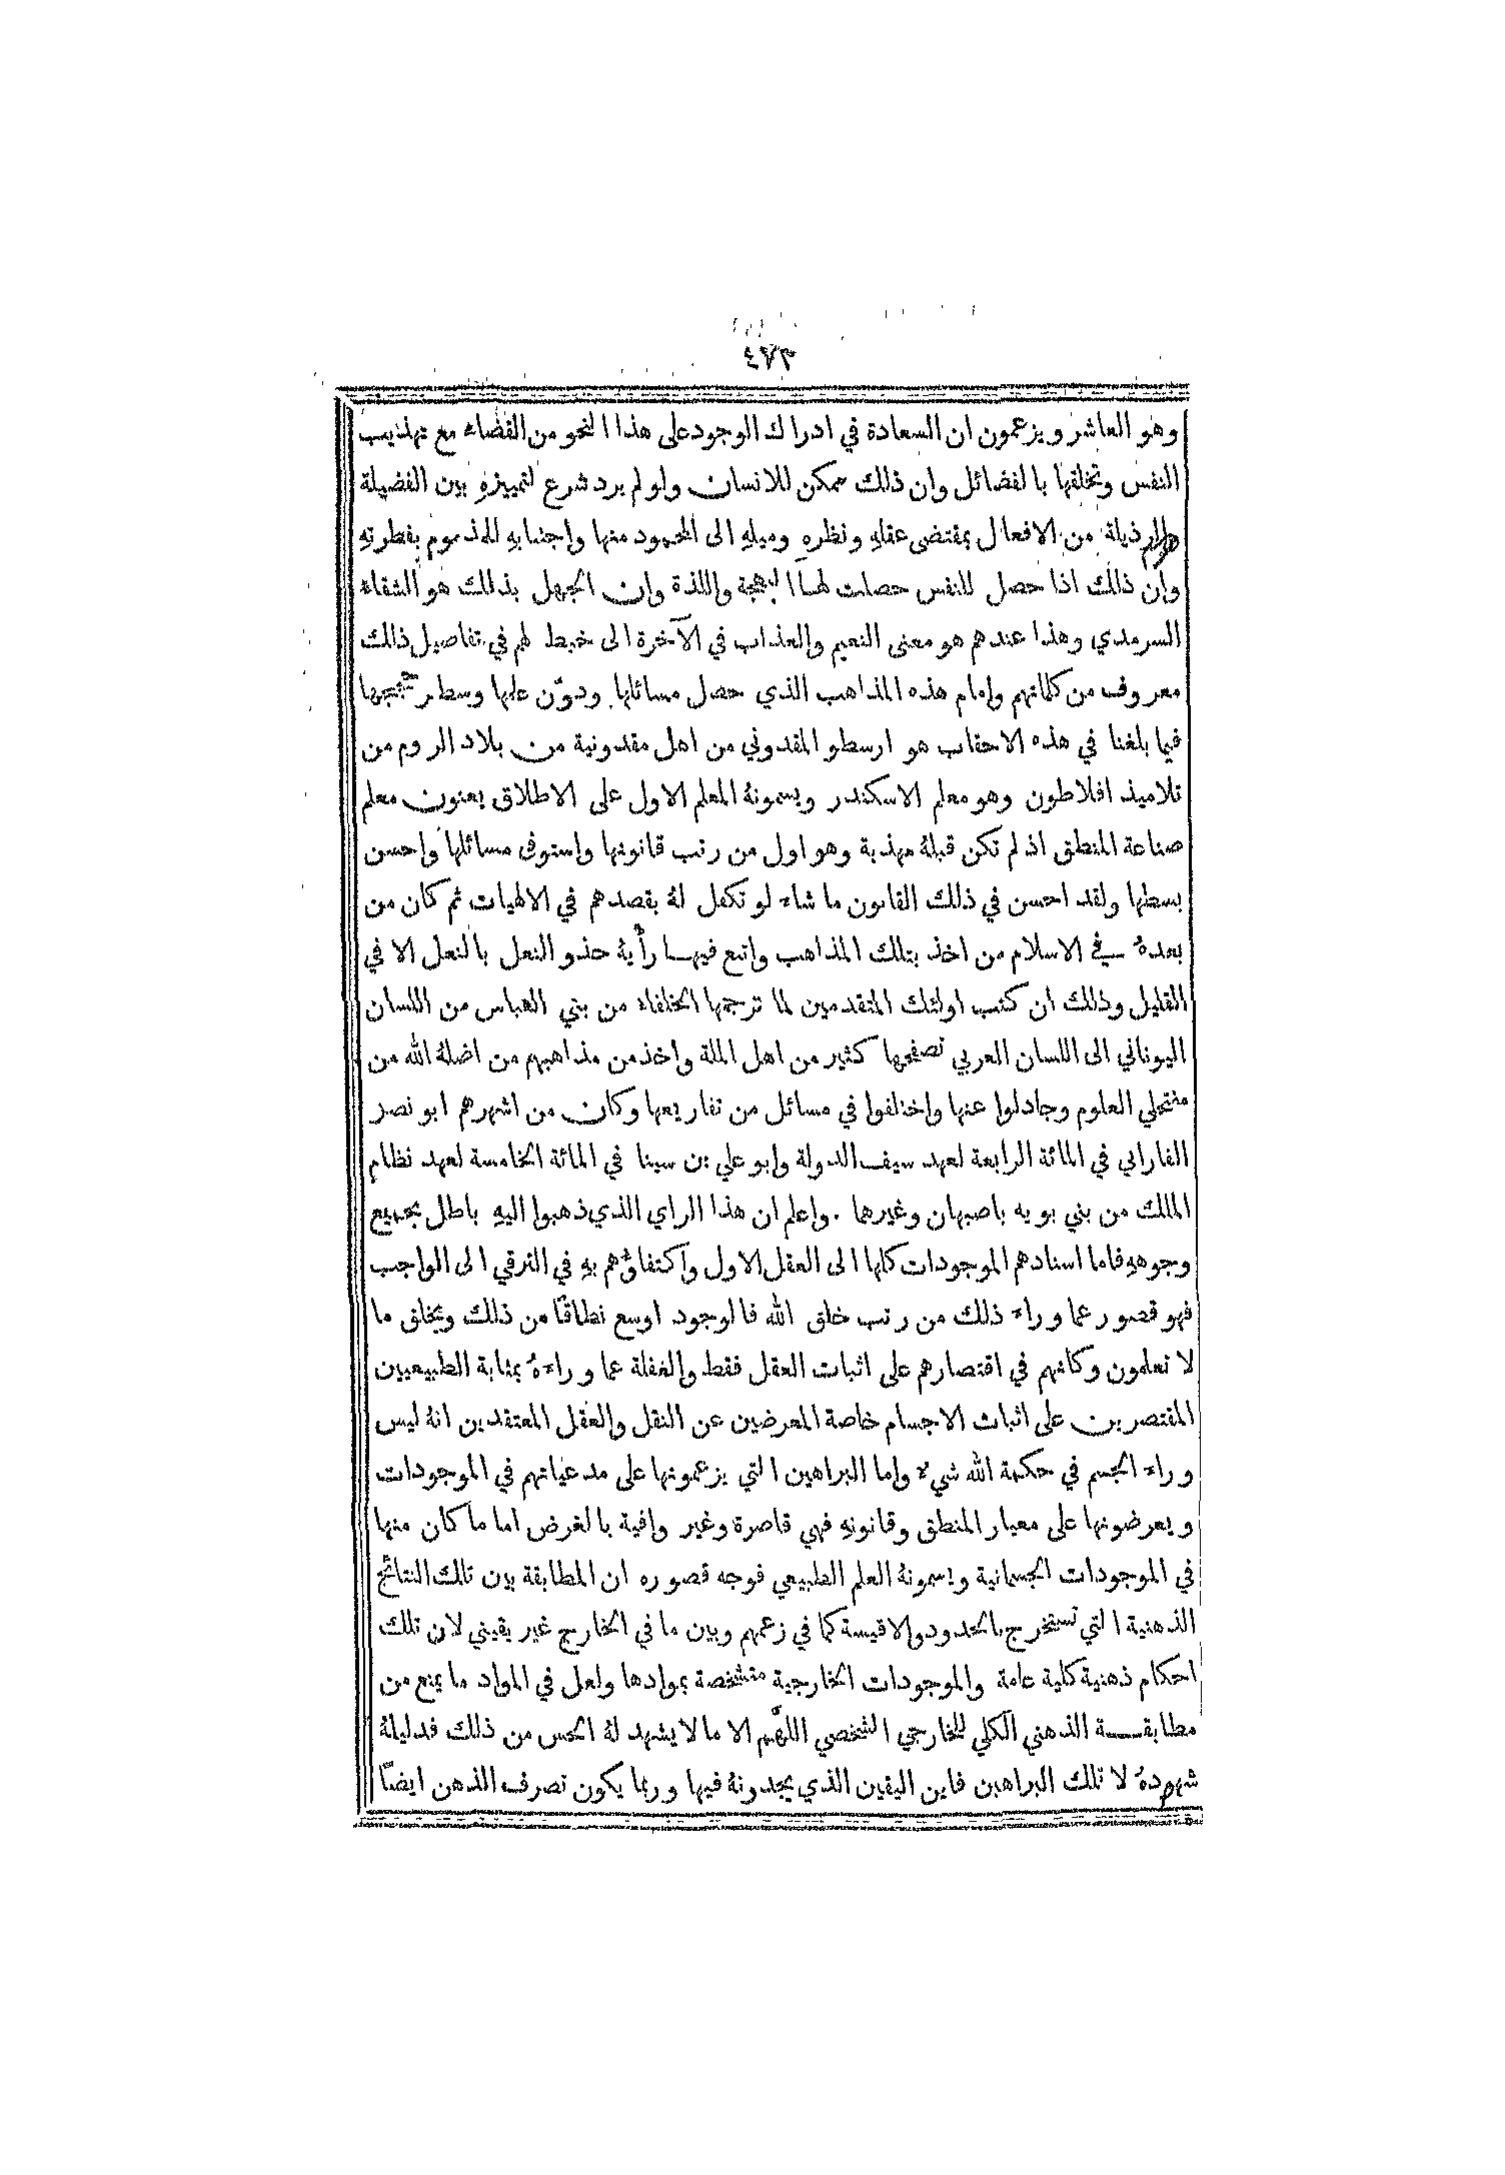 ٤٧٣
وهو العاشر ويزعمون ان السعادة في ادراك الوجود على هذا النحو من القضاء مع تهذيب
النفس وتخلقها بالفضائل وان ذلك ممكن للانسان ولو لم يرد شرع لتمييزهِ بين الفضيلة
والرذيلة من الافعال بمقتضى عقلهِ ونظرهِ وميلهِ الى المحمود منها واجتنابهِ للمذموم بفطرتهِ
وان ذلك اذا حصل للنفس حصلت لها البهجة واللذة وان الجهل بذلك هو الشقاء
السرمدي وهذا عندهم هو معنى النعيم والعذاب في الآخرة الى خبط لهم في تفاصيل ذلك
معروف من كلماتهم وامام هذه المذاهب الذي حصل مسائلها ودوّن علمها وسطر حججها
فيما بلغنا في هذه الاحقاب هو ارسطو المقدوني من اهل مقدونية من بلاد الروم من
تلاميذ افلاطون وهو معلم الاسكندر ويسمونهُ المعلم الاول على الاطلاق يعنون معلم
صناعة المنطق اذ لم تكن قبلهُ مهذبة وهو اول من رتب قانونها واستوفى مسائلها واحسن
بسطها ولقد احسن في ذلك القانون ما شاء لو تكفل لهُ بقصدهم في الالهيات ثم كان من
بعدهُ في الاسلام من اخذ بتلك المذاهب واتبع فيها رأيهُ حذو النعل بالنعل الا في
القليل وذلك ان كتب اولئك المتقدمين لما ترجمها الخلفاء من بني العباس من اللسان
اليوناني الى اللسان العربي تصفحها كثير من اهل الملة واخذ من مذاهبهم من اضلهُ الله من
منتحلي العلوم وجادلوا عنها واختلفوا في مسائل من تفاريعها وكان من اشهرهم ابو نصر
الفارابي في المائة الرابعة لعهد سيف الدولة وابو علي بن سينا في المائة الخامسة لعهد نظام
الملك من بني بويه باصبهان وغيرها . واعلم ان هذا الراي الذي ذهبوا اليهِ باطل بجميع
وجوههِ فاما اسنادهم الموجودات كلها الى العقل الاول واكتفاؤهم بهِ في الترقي الى الواجب
فهو قصور عما وراء ذلك من رتب خلق الله فالوجود اوسع نطاقًا من ذلك ويخلق ما
لا تعلمون وكانهم في اقتصارهم على اثبات العقل فقط والغفلة عما وراءهُ بمثابة الطبيعيين
المقتصرين على اثبات الاجسام خاصة المعرضين عن النقل والعقل المعتقدين انهُ ليس
وراء الجسم في حكمة الله شيء واما البراهين التي يزعمونها على مدعياتهم في الموجودات
ويعرضونها على معيار المنطق وقانونهِ فهي قاصرة وغير وافية بالغرض اما ما كان منها
في الموجودات الجسمانية ويسمونهُ العلم الطبيعي فوجه قصوره ان المطابقة بين تلك النتائج
الذهنية التي تستخرج بالحدود والاقيسة كما في زعمهم وبين ما في الخارج غير يقيني لان تلك
احكام ذهنية كلية عامة والموجودات الخارجية متشخصة بموادها ولعل في المواد ما يمنع من
مطابقة الذهني الكلي للخارجي الشخصي اللهم الا ما لا يشهد لهُ الحس من ذلك فدليلهُ
شهودهُ لا تلك البراهين فاين اليقين الذي يجدونهُ فيها وربما يكون تصرف الذهن ايضًا